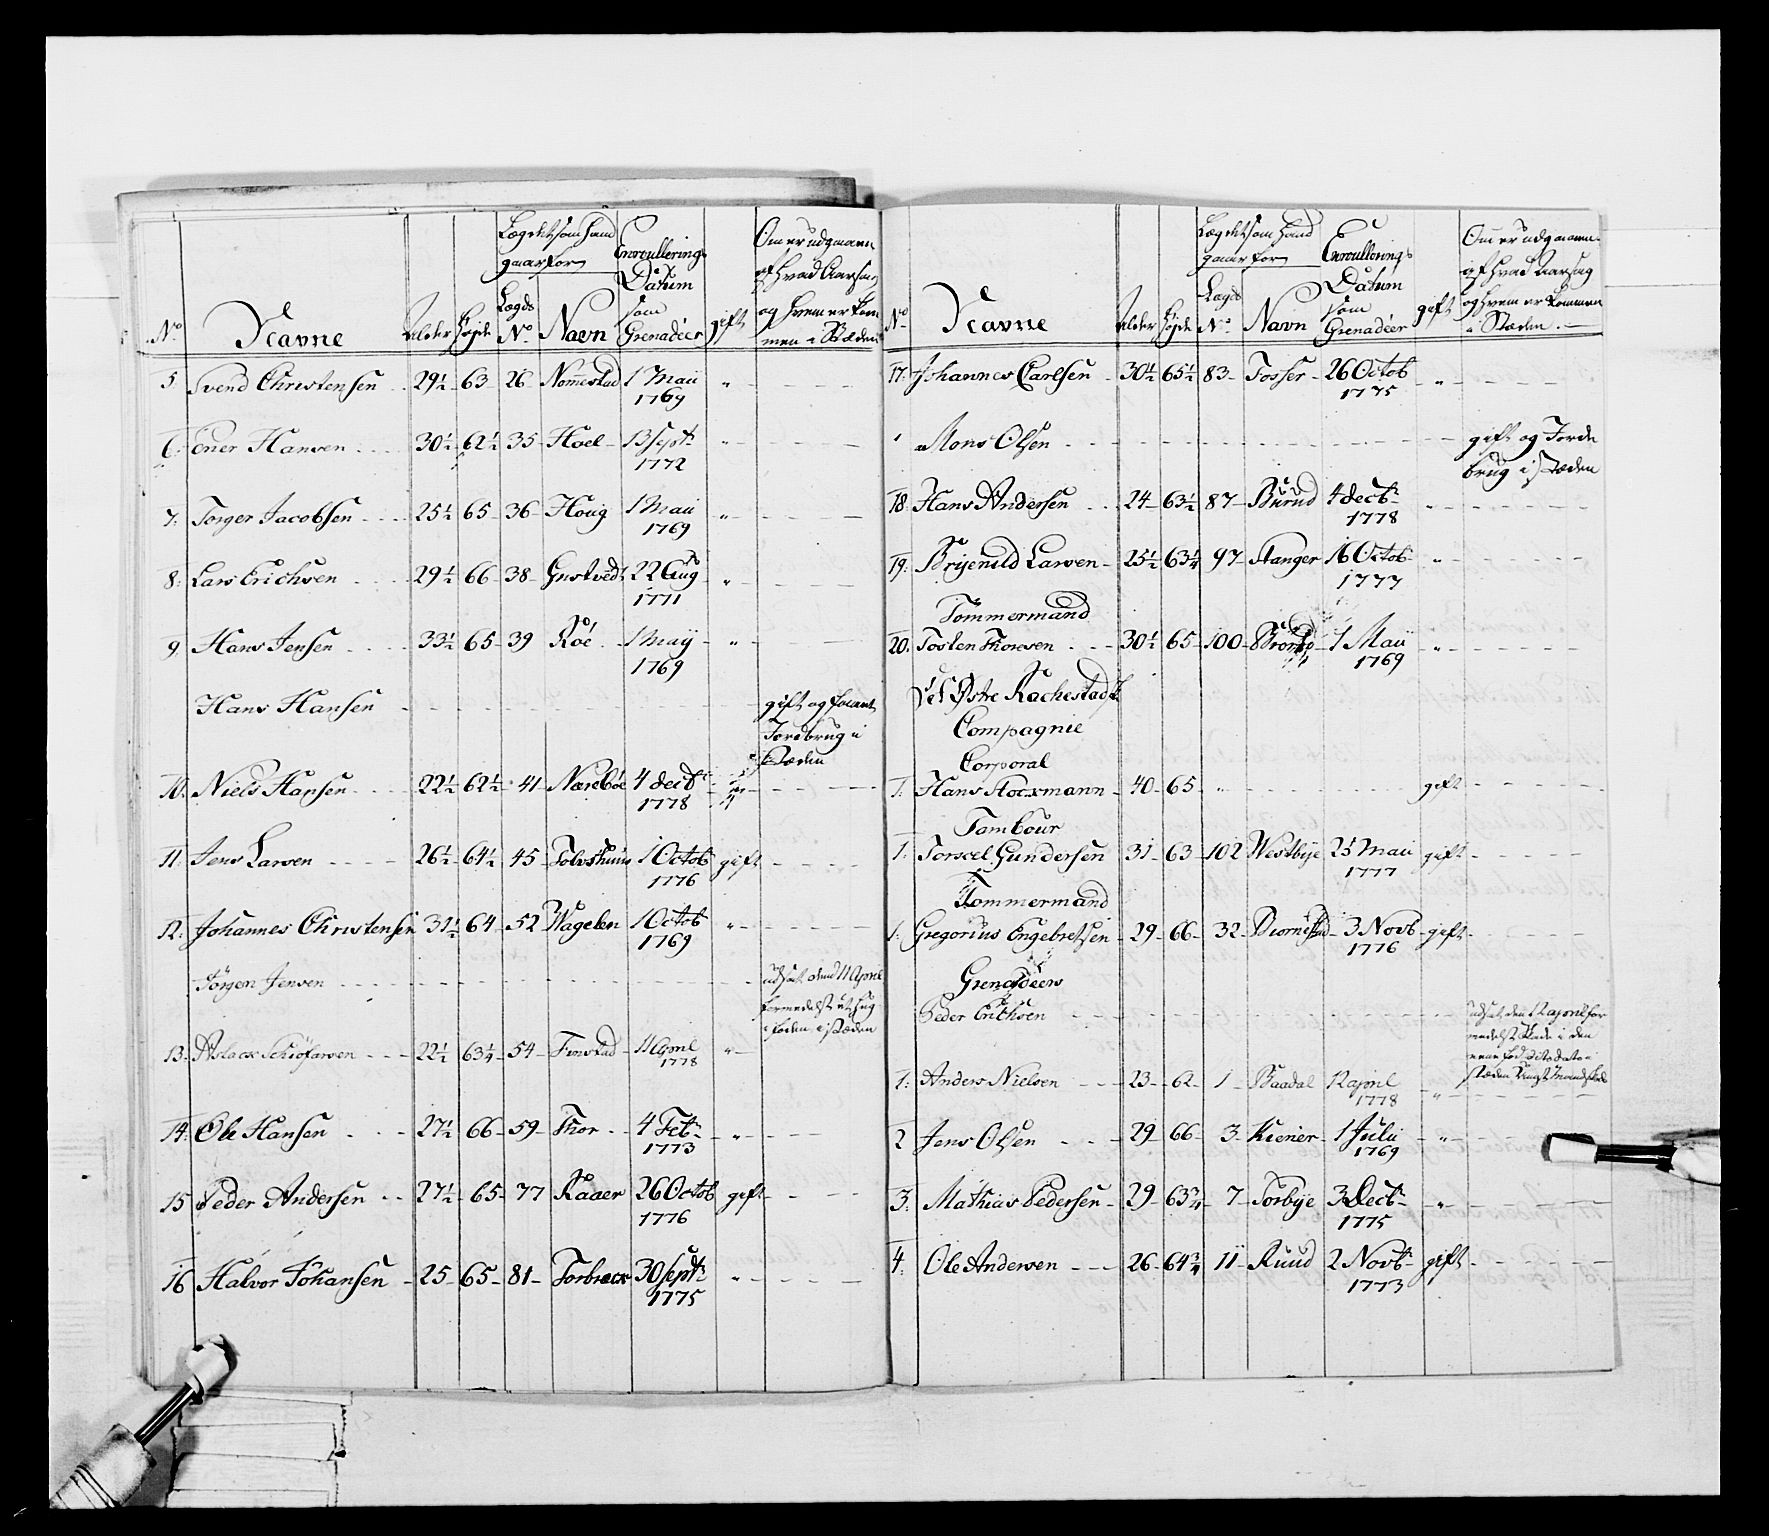 No Navne Alder Højde Lægdet som hand gaar for Lægds No. Navn Enroullerings Datum som Grenadéer gift Om er udgaaen af hvad Aarsag og hvem er kommen i Stæden
5. Svend Christensen 29½ 63 26 Nommestad 1 Maii 1769 "
6. Ener Hansen 30½ 62½ 35 Hoel 13 Septr 1772 "
7. Torger Jacobsen 25½ 65 36 Houg 1 Maii 1769 "
8. Lars Erichsen 29½ 66 38 22 Aug 1771 "
9. Hans Jensen 33½ 65 39 Roé 1 Maÿ 1769 "
Hans Hansen gift og
Jordbrug i
Stæden
10. Niels Hansen 22½ 62½ 41 Næreboe 4 Decbr 1778
11. Jens Larsen 26½ 64½ 45 Tolvshuus 1 Octob 1776 gift
12. Johannes Christensen 31½ 64 52 Wagelen 1 Octob 1769 "
Jörgen Jensen udsat dend 11 April
formedelst et hug
i foden, i stæden
13. Aslack 22½ 63¼ 54 Finstad 11 April 1778 "
14. Ole Hansen 27½ 66 59 Thor 4 Febr 1773 "
15 Peder Andersen 27½ 65 77 Raaer 26 Octob 1776 gift
16 Halvor Johansen 25 65 81 Torbræck 30 Septr 1775 "
No Navne Alder Højde Lægdet som hand gaar for Lægds No. Navn Enroullerings Datum som Grenadéer gift Om er udgaaen af hvad Aarsag og hvem er kommen i Stæden
17. Johannes Carlsen 30½ 65½ 83 Fosser 26 Octob 1775 "
Mons Olsen gift og Jorde
brug i stæden
18. Hans Andersen 24 63½ 87 Burud 4 Decbr 1778 "
19. Brÿenild Larsen 25½ 63¼ 97 Stanger 16 Octob 1777 "
Tömmermand
20. Tosten Thoresen 30½ 65 100 1 Maii 1769 "
Østre Rachestadsk
Compagnie
Corporal
1. Hans Stockmann 40 65 " gift
Tambour
1. Torscel Gundersen 31 63 102 Westbÿe 25 Maii 1777 gift
Tommermand
1. Gregorius Engebretsen 29 66 32 Biörnestad 3 Novb 1776 gift
Grenadeers
Peder Erichsen udsat den 12 april for
medelst Skade i den
eene fod
1. Anders Nielsen 23 62 1 Baadal 12 april 1778 "
2 Jens Olsen 29 66 3 Kiener 1 Julii 1769 "
3. Mathias Pedersen 29 63¾ 7 Torbÿe 3 Decbr 1775 "
4. Ole Andersen 26 64¾ 11 Ruud 2 Novbr 1773 gift